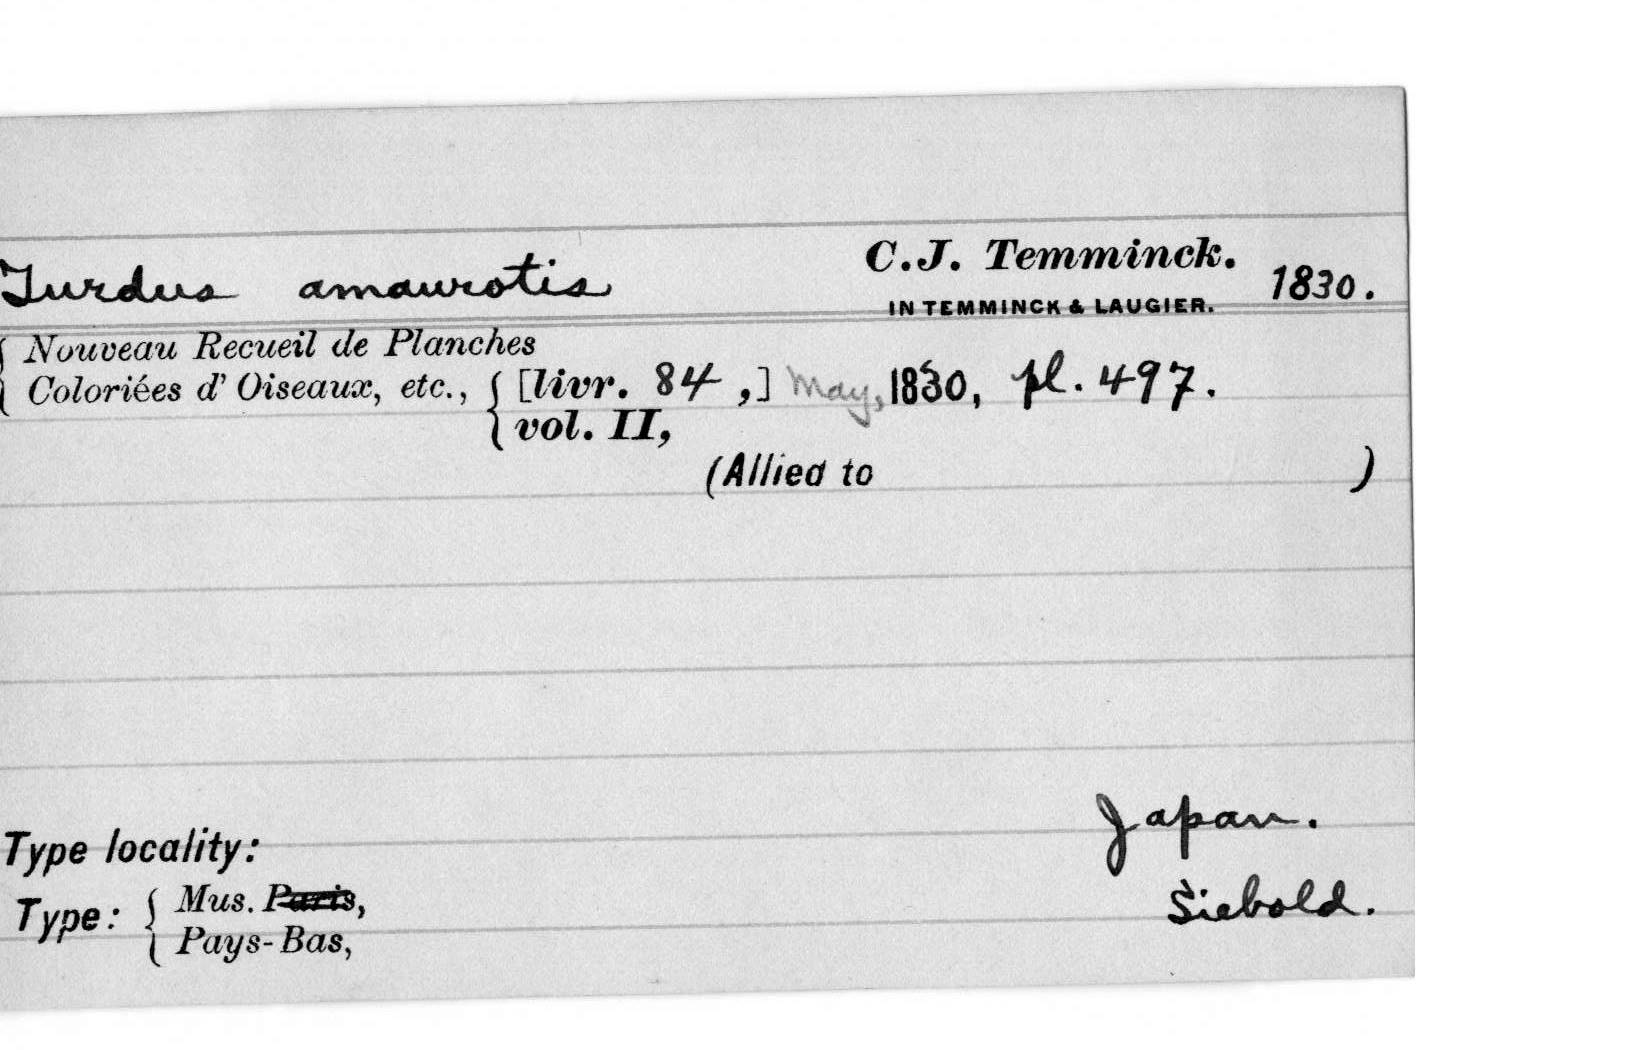 Turdus amaurotis C.J. Temminck. 1830.
IN TEMMINCK & LAUGIER.
Nouveau Recueil de Planches
Coloriées d' Oiseaux, etc., [livr. 84 ,] May, 1830, pl. 497.
vol. II,
(Allied to )
Japan.
Type locality:
Type: Mus. Paris, Siebold.
Pays-Bas,